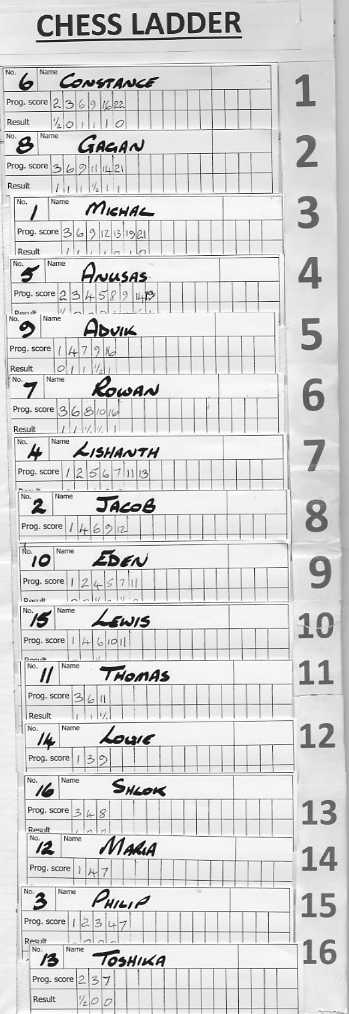 CHESS LADDER
No. 6 Name CONSTANCE 1
Prog. score 2 3 6 9 16 22
Result ½ 0 1 1 1 0
No. 8 Name GAGAN 2
Prog. score 3 6 9 11 14 21
Result 1 1 1 ½ 1 1
No. 1 Name MICHAL 3
Prog. score 3 6 9 12 13 19 21
Result
No. 5 Name ANUSAS 4
Prog. score 2 3 4 5 8 9 14 19
Result
No. 9 Name ADVIK 5
Prog. score 1 4 7 9 16
Result 0 1 1 ½ 1
No. 7 Name ROWAN 6
Prog. score 3 6 8 10 16
Result 1 1 ½ ½ 1
No. 4 Name LISHANTH 7
Prog. score 1 2 5 6 7 11 13
No. 2 Name JACOB 8
Prog. score 1 4 6 9 12
No. 10 Name EDEN 9
Prog. score 1 2 4 5 7 11
Result
No. 15 Name LEWIS 10
Prog. score 1 4 6 10 11
No. 11 Name THOMAS 11
Prog. score 3 6 11
Result 1 1 ½
No. 14 Name LOUIE 12
Prog. score 1 3 9
No. 16 Name SHLOK 13
Prog. score 3 4 8
Result
No. 12 Name MARIA 14
Prog. score 1 4 7
No. 3 Name PHILIP 15
Prog. score 1 2 3 4 7
Result
No. 13 Name TOSHIKA 16
Prog. score 2 3 7
Result ½ 0 0